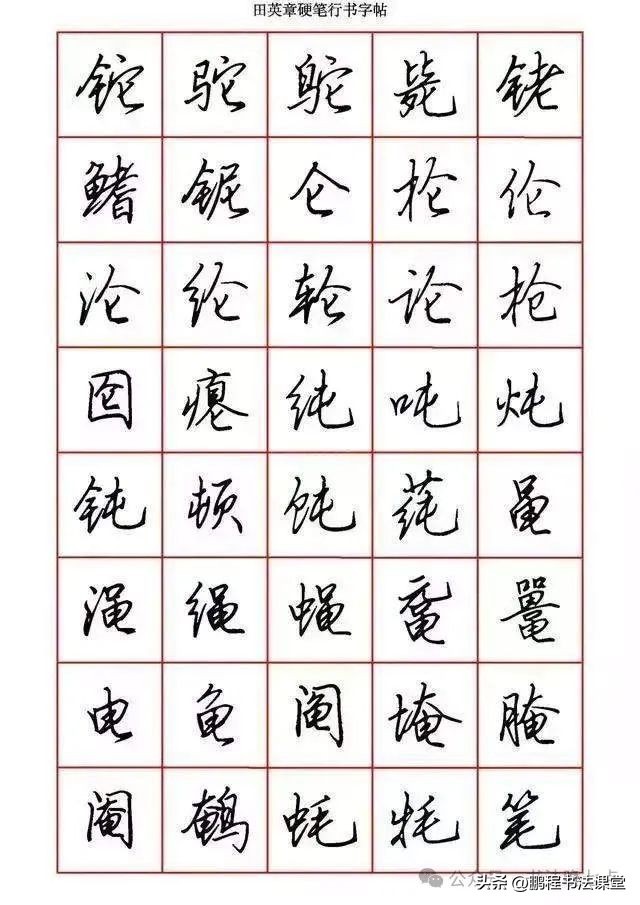 田英章硬笔行书字帖
铊 驼 鸵 毙 铑
鳍 铌 仑 抡 伦
沦 纶 轮 论 枪
囵 瘪 纯 吨 炖
钝 顿 饨 莼 黾
渑 绳 蝇 鼋 鼍
电 龟 阄 埯 腌
阉 鹌 蚝 牦 笔
头条 @鹏程书法课堂